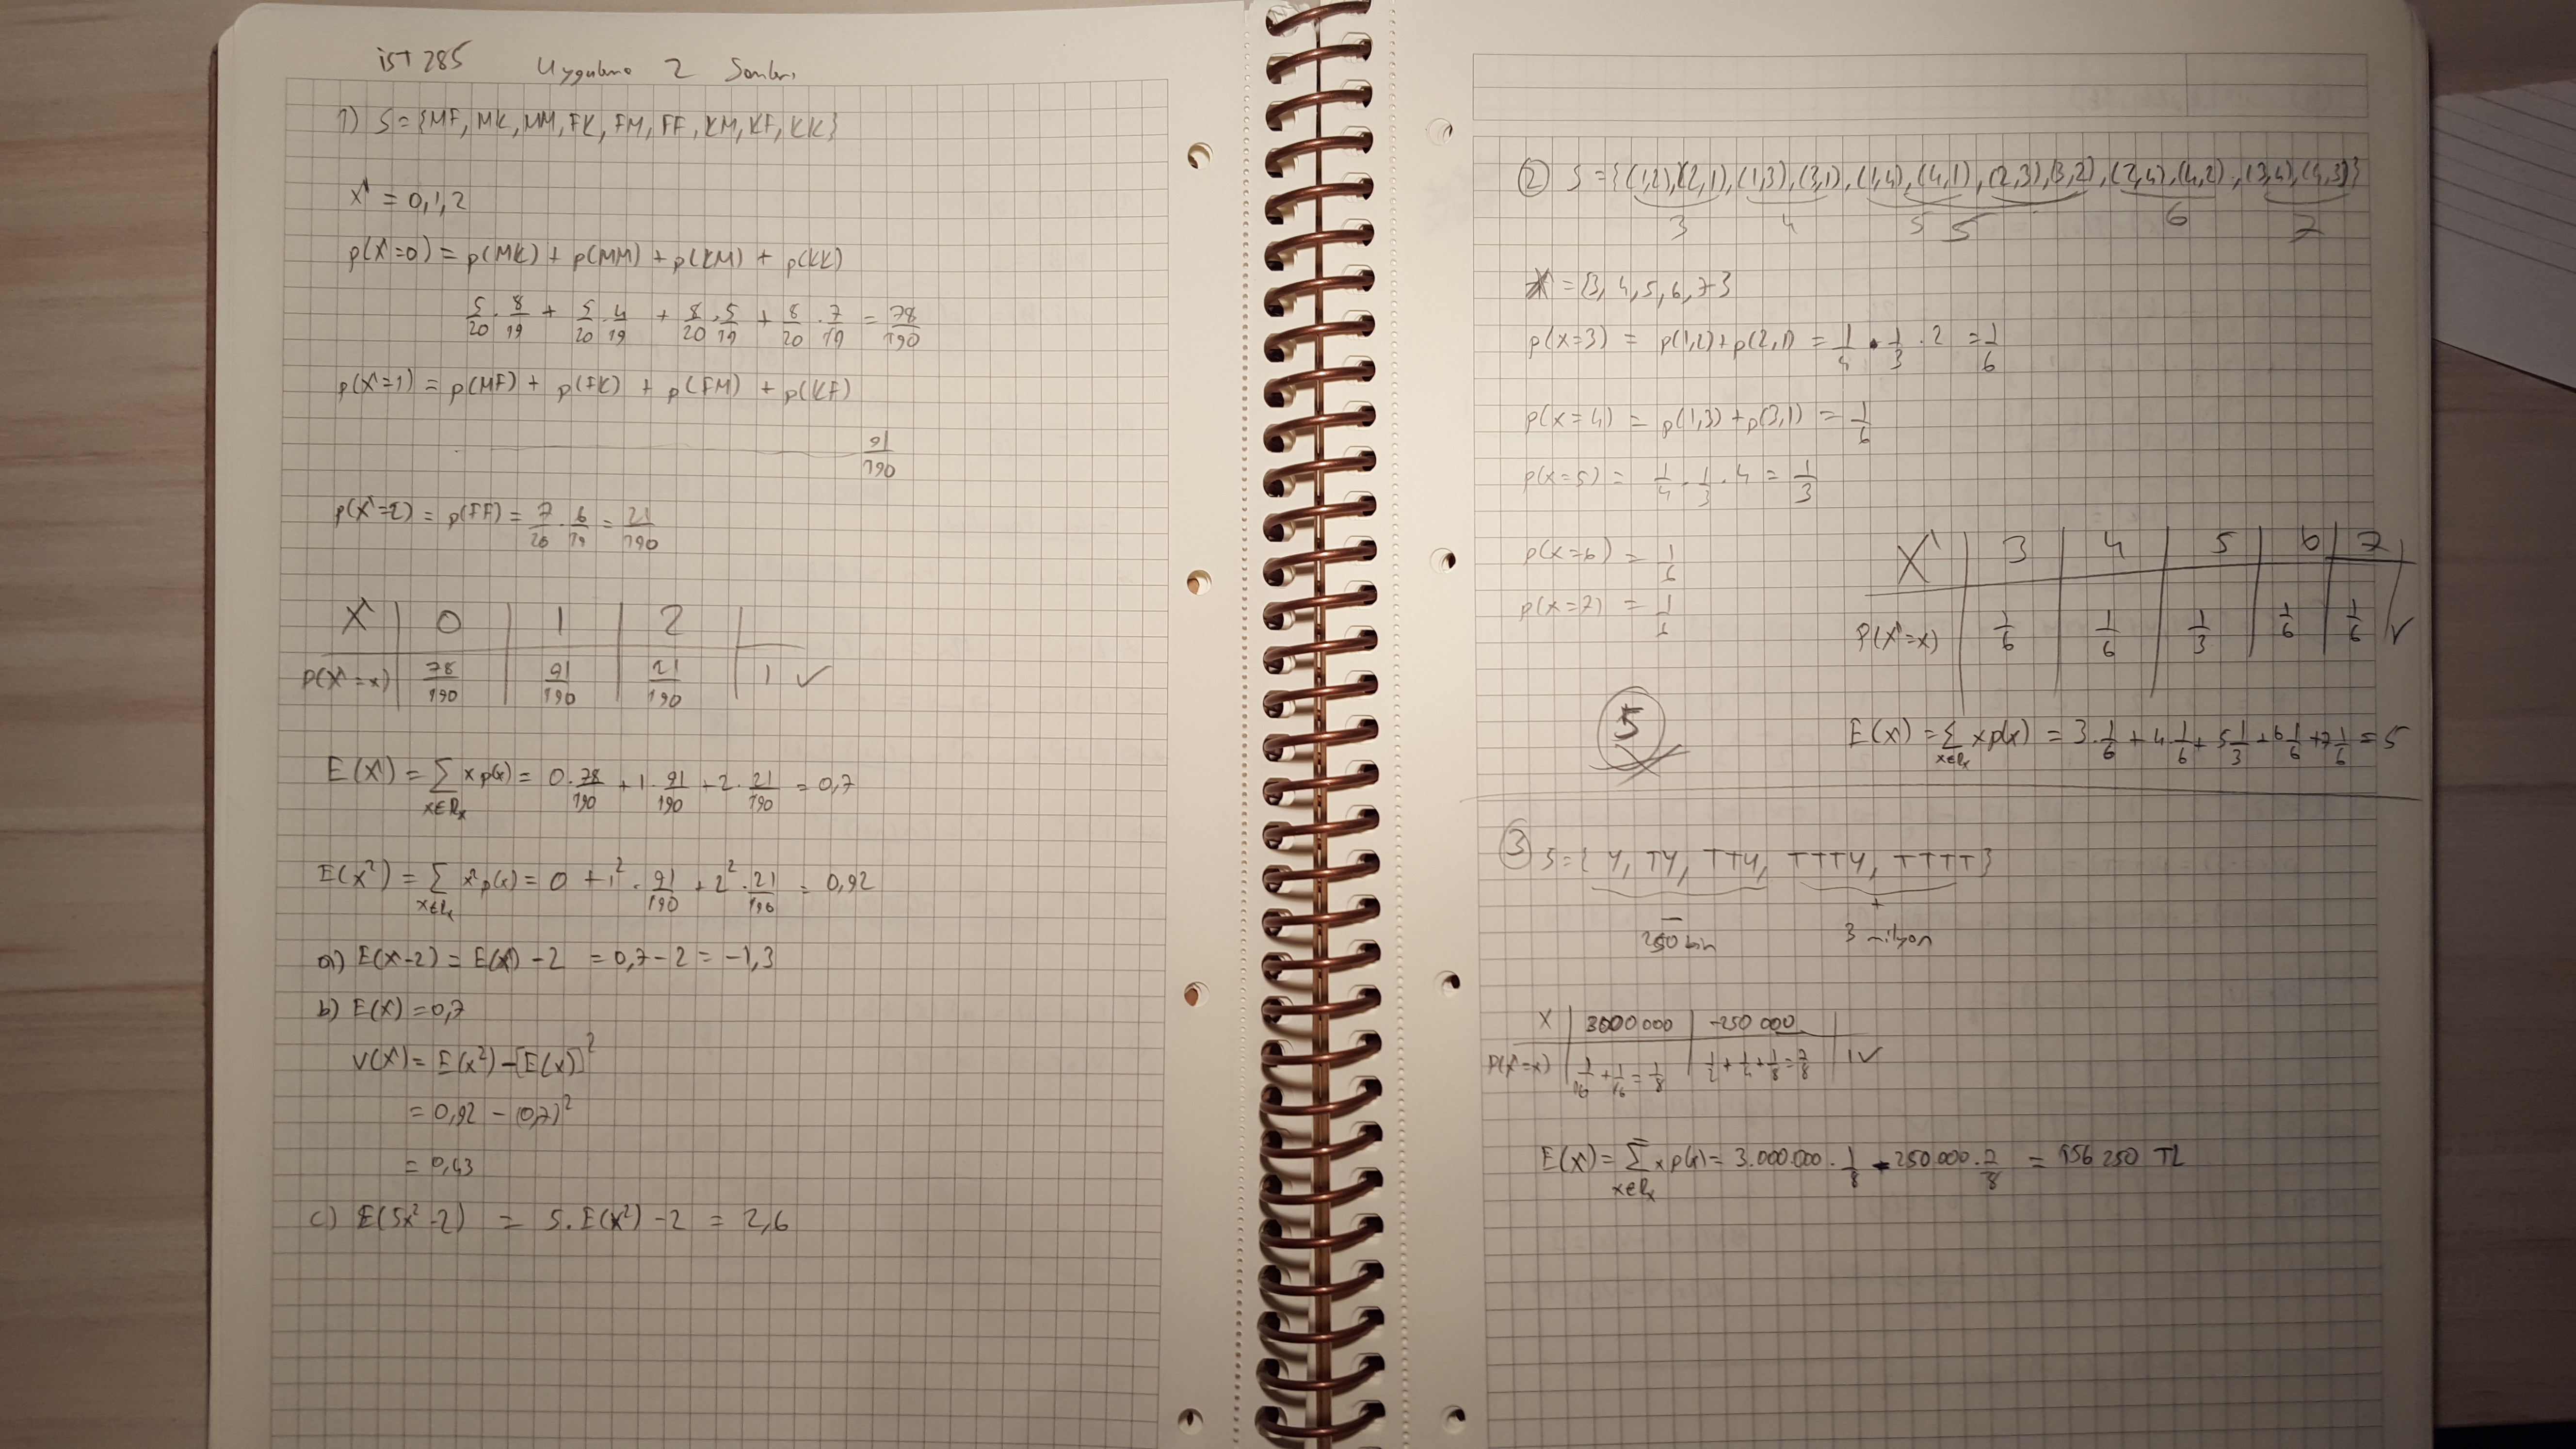 İST 285 Uygulama 2 Soruları
1) S = {MF, MK, MM, FK, FM, FF, KM, KF, KK}
X = 0,1,2
p(X=0) = p(MK) + p(MM) + p(KM) + p(KK)
5/20 . 8/19 + 5/20 . 4/19 + 8/20 . 5/19 + 8/20 . 7/19 = 78/190
p(X=1) = p(MF) + p(FK) + p(FM) + p(KF)
91/190
p(X=2) = p(FF) = 7/20 . 6/19 = 21/190
X | 0 | 1 | 2 |
P(X=x) | 78/190 | 91/190 | 21/190 | 1 ✓
E(X) = Σ x p(x) = 0.78/190 + 1.91/190 + 2.21/190 = 0,7
x∈Rx
E(x²) = Σ x² p(x) = 0 + 1² . 91/190 + 2² . 21/190 = 0,92
x∈Rx
a) E(X-2) = E(X) - 2 = 0,7 - 2 = -1,3
b) E(X) = 0,7
V(X) = E(x²) - [E(x)]²
= 0,92 - (0,7)²
= 0,43
c) E(5x² - 2) = 5.E(x²) - 2 = 2,6
② S = {(1,2),(2,1),(1,3),(3,1),(1,4),(4,1),(2,3),(3,2),(2,4),(4,2),(3,4),(4,3)}
3 4 5 5 6 7
X = {3, 4, 5, 6, 7}
p(x=3) = p(1,2) + p(2,1) = 1/4 . 1/3 . 2 = 1/6
p(x=4) = p(1,3) + p(3,1) = 1/6
p(x=5) = 1/4 . 1/3 . 4 = 1/3
p(x=6) = 1/6
p(x=7) = 1/6
X | 3 | 4 | 5 | 6 | 7
P(X=x) | 1/6 | 1/6 | 1/3 | 1/6 | 1/6 ✓
5
E(X) = Σ x p(x) = 3.1/6 + 4 1/6 + 5 1/3 + 6 1/6 + 7 1/6 = 5
x∈Rx
③ S = { Y, TY, TTY, TTTY, TTTT }
- +
250 bin 3 milyon
X | 3000 000 | -250 000 |
P(X=x) | 1/16 + 1/16 = 1/8 | 1/2 + 1/4 + 1/8 = 7/8 | 1 ✓
E(X) = Σ x p(x) = 3.000.000 . 1/8 - 250 000 . 7/8 = 156 250 TL
x∈Rx